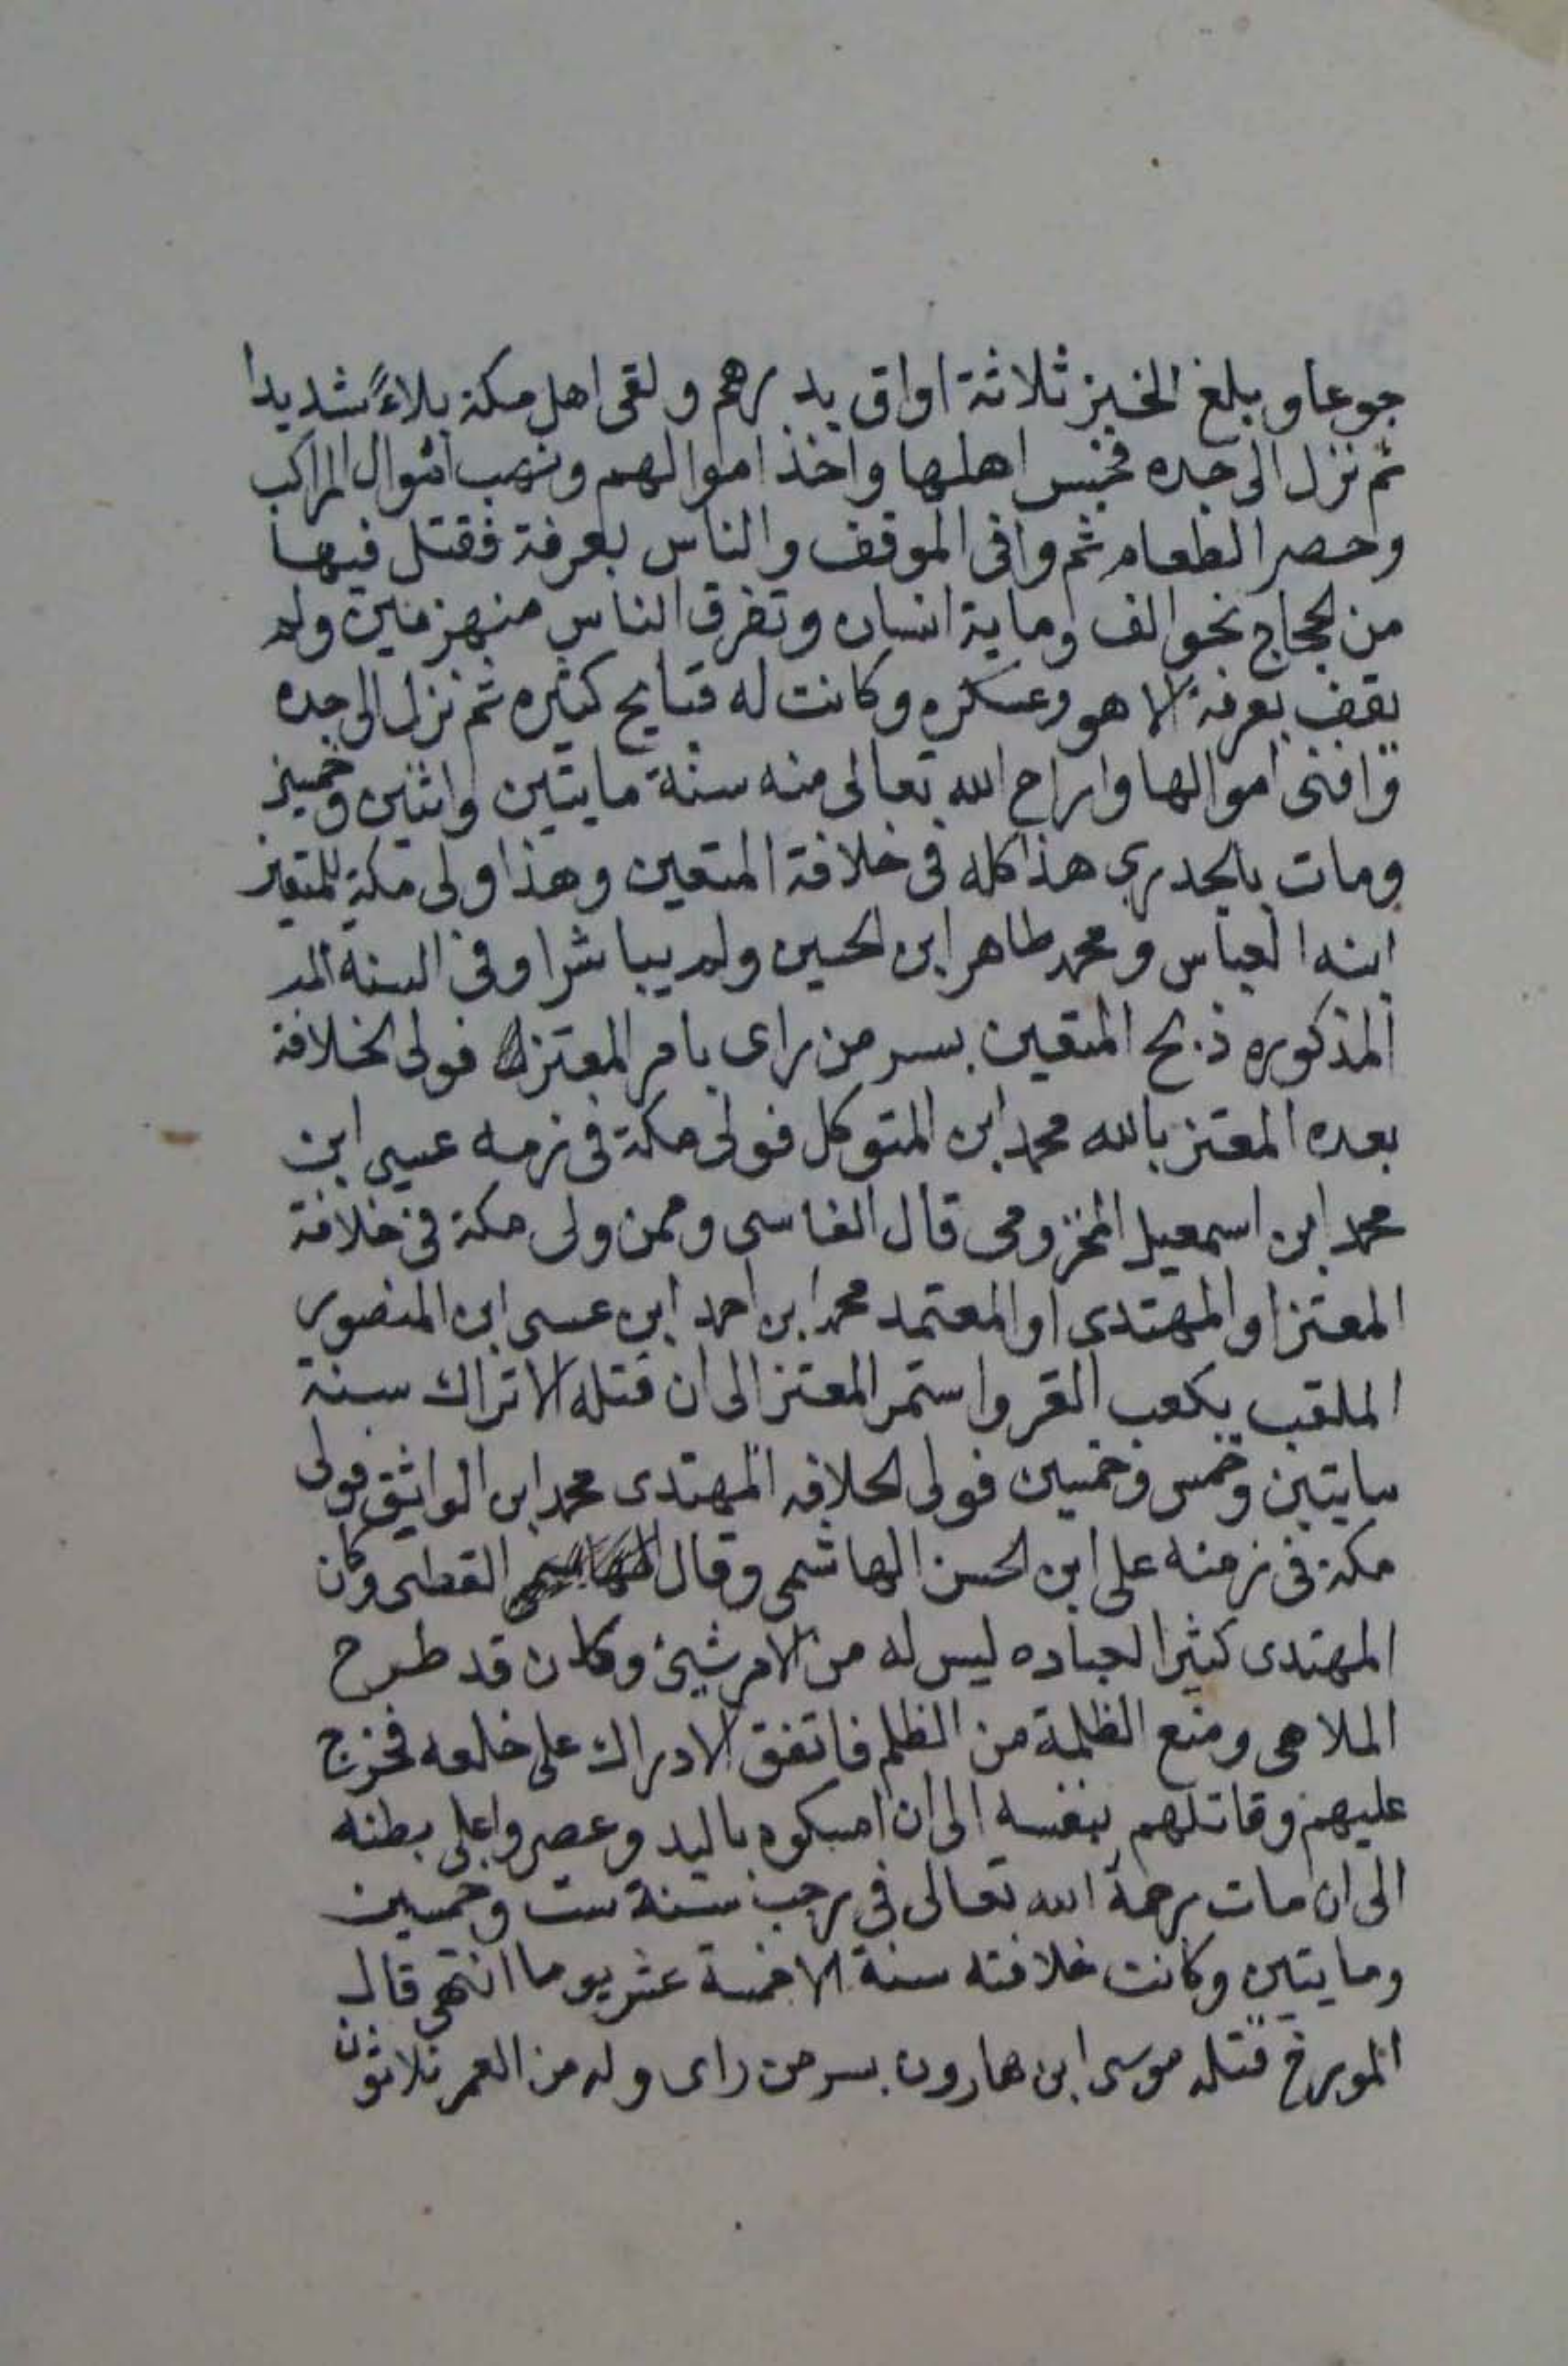 جوعا وبلغ الخبز ثلاثة اواق بدرهم ولقى اهل مكة بلاءً شديدا
ثم نزل الى جده فحبس اهلها واخذ اموالهم ونهب اموال المراكب
وحصر الطعام ثم وافى الموقف والناس بعرفة فقتل فيها
من الحجاج نحو الف وماية انسان وتفرق الناس منهزمين ولم
يقف بعرفة الا هو وعسكره وكانت له قبايح كثيره ثم نزل الى جده
وافنى اموالها واراح الله تعالى منه سنة مايتين واثنين وخمسين
ومات بالجدري هذا كله في خلافة المتعين وهذا ولى مكة للمتعين
ابنه العباس ومحمد طاهر ابن الحسين ولم يباشرا وفي السنة المد
المذكوره ذبح المتعين بسر من راى بامر المعتز فولى الخلافة
بعده المعتز بالله محمد ابن المتوكل فولى مكة في زمنه عيسى ابن
محمد ابن اسمعيل المخزومي قال الفاسي وممن ولى مكة في خلافة
المعتز او المهتدى او المعتمد محمد ابن احمد ابن عيسى ابن المنصور
الملقب بكعب القر واستمر المعتز الى ان قتله الاتراك سنة
مايتين وخمس وخمسين فولى الخلافه المهتدى محمد ابن الواثق فولى
مكة في زمنه على ابن الحسن الهاشمي وقال القطبى وكان
المهتدى كثير العباده ليس له من الامر شيئ وكان قد طرح
الملاهى ومنع الظلمة من الظلم فاتفق الادراك على خلعه فخرج
عليهم وقاتلهم بنفسه الى ان امسكوه باليد وعصروا على بطنه
الى ان مات رحمة الله تعالى في رجب سنة ست وخمسين
ومايتين وكانت خلافته سنة الا خمسة عشر يوما انتهى قال
المورخ قتله موسى ابن هارون بسر من راى وله من العمر ثلاثون